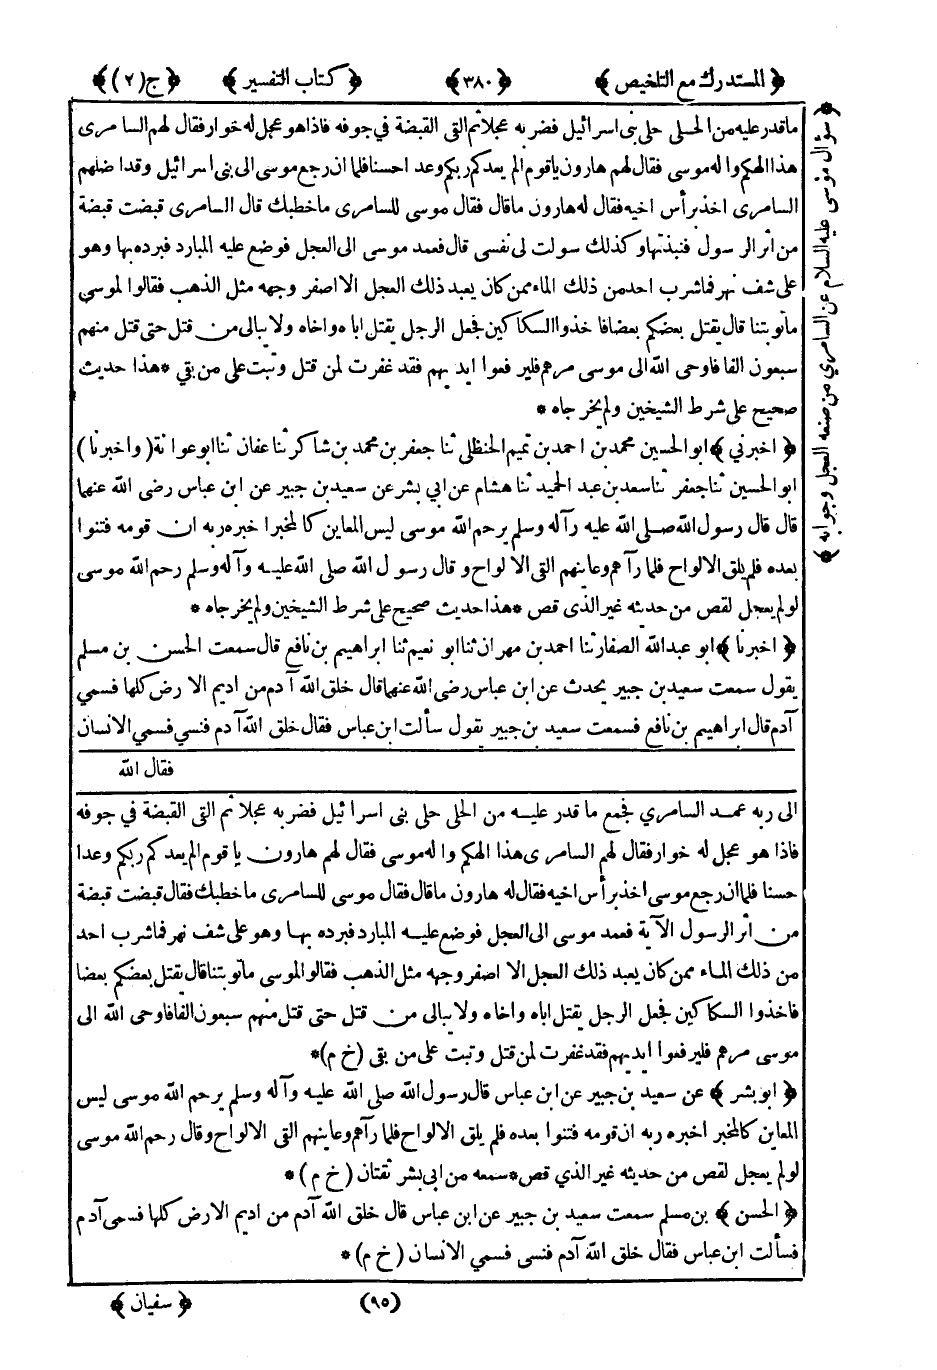 ﴿ المستدرك مع التلخيص ﴾ ﴿ ٣٨٠ ﴾ ﴿ كتاب التفسير ﴾ ﴿ ج (٢) ﴾
ما قدر عليه من الحلى حلى بنى اسرائيل فضربه عجلا ثم القى القبضة في جوفه فاذا هو عجل له خوار فقال لهم السامرى
هذا الهكم واله موسى فقال لهم هارون يا قوم الم يعدكم ربكم وعدا حسنا فلما ان رجع موسى الى بنى اسرائيل وقد اضلهم
السامرى اخذ برأس اخيه فقال له هارون ما قال فقال موسى للسامرى ما خطبك قال السامرى قبضت قبضة
من اثر الرسول فنبذتها وكذلك سولت لى نفسى قال فعمد موسى الى العجل فوضع عليه المبارد فبرده بها وهو
على شف نهر فما شرب احد من ذلك الماء ممن كان يعبد ذلك العجل الا اصفر وجهه مثل الذهب فقالوا لموسى
ما توبتنا قال يقتل بعضكم بعضا فاخذوا السكاكين فجعل الرجل يقتل اباه واخاه ولا يبالى من قتل حتى قتل منهم
سبعون الفا فاوحى الله الى موسى مرهم فلير فعوا ايديهم فقد غفرت لمن قتل وتبت على من بقي * هذا حديث
صحيح على شرط الشيخين ولم يخرجاه *
﴿ اخبرني ﴾ ابو الحسين محمد بن احمد بن تميم الحنظلى ثنا جعفر بن محمد بن شاكر ثنا عفان ثنا ابو عوانة (واخبرنا)
ابو الحسين ثنا جعفر ثنا سعد بن عبد الحميد ثنا هشام عن ابي بشر عن سعيد بن جبير عن ابن عباس رضى الله عنهما
قال قال رسول الله صلى الله عليه وآله وسلم يرحم الله موسى ليس المعاين كالمخبر اخبره ربه ان قومه فتنوا
بعده فلم يلق الالواح فلما رآهم وعاينهم القى الالواح وقال رسول الله صلى الله عليه وآله وسلم رحم الله موسى
لو لم يعجل لقص من حديثه غير الذى قص * هذا حديث صحيح على شرط الشيخين ولم يخرجاه *
﴿ اخبرنا ﴾ ابو عبدالله الصفار ثنا احمد بن مهران ثنا ابو نعيم ثنا ابراهيم بن نافع قال سمعت الحسن بن مسلم
يقول سمعت سعيد بن جبير يحدث عن ابن عباس رضى الله عنهما قال خلق الله آدم من اديم الارض كلها فسمي
آدم قال ابراهيم بن نافع فسمعت سعيد بن جبير يقول سألت ابن عباس فقال خلق الله آدم فنسي فسمي الانسان
فقال الله
سؤال موسى عليه السلام عن السامري من صنعه العجل وجوابه ﴾
الى ربه عمد السامري فجمع ما قدر عليه من الحلى حلى بنى اسرائيل فضربه عجلا ثم القى القبضة في جوفه
فاذا هو عجل له خوار فقال لهم السامرى هذا الهكم واله موسى فقال لهم هارون يا قوم الم يعدكم ربكم وعدا
حسنا فلما ان رجع موسى اخذ برأس اخيه فقال له هارون ما قال فقال موسى للسامرى ما خطبك فقال قبضت قبضة
من اثر الرسول الآية فعمد موسى الى العجل فوضع عليه المبارد فبرده بها وهو على شف نهر فما شرب احد
من ذلك الماء ممن كان يعبد ذلك العجل الا اصفر وجهه مثل الذهب فقالوا لموسى ما توبتنا قال يقتل بعضكم بعضا
فاخذوا السكاكين فجعل الرجل يقتل اباه واخاه ولا يبالى من قتل حتى قتل منهم سبعون الفا فاوحى الله الى
موسى مرهم فلير فعوا ايديهم فقد غفرت لمن قتل وتبت على من بقى (خ م) *
﴿ ابو بشر ﴾ عن سعيد بن جبير عن ابن عباس قال رسول الله صلى الله عليه وآله وسلم يرحم الله موسى ليس
المعاين كالمخبر اخبره ربه ان قومه فتنوا بعده فلم يلق الالواح فلما رآهم وعاينهم القى الالواح وقال رحم الله موسى
لو لم يعجل لقص من حديثه غير الذي قص * سمعه من ابى بشر ثقتان (خ م) *
﴿ الحسن ﴾ بن مسلم سمعت سعيد بن جبير عن ابن عباس قال خلق الله آدم من اديم الارض كلها فسمى آدم
فسألت ابن عباس فقال خلق الله آدم فنسى فسمي الانسان (خ م) *
(٩٥) ﴿ سفيان ﴾